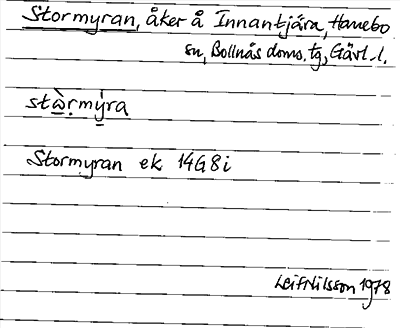 Stormyran, åker å Innantjära, Hanebo
sn, Bollnäs doms. tg, Gävl. l.
stàṛmýra
Stormyran ek 14G8i
Leif Nilsson 1978